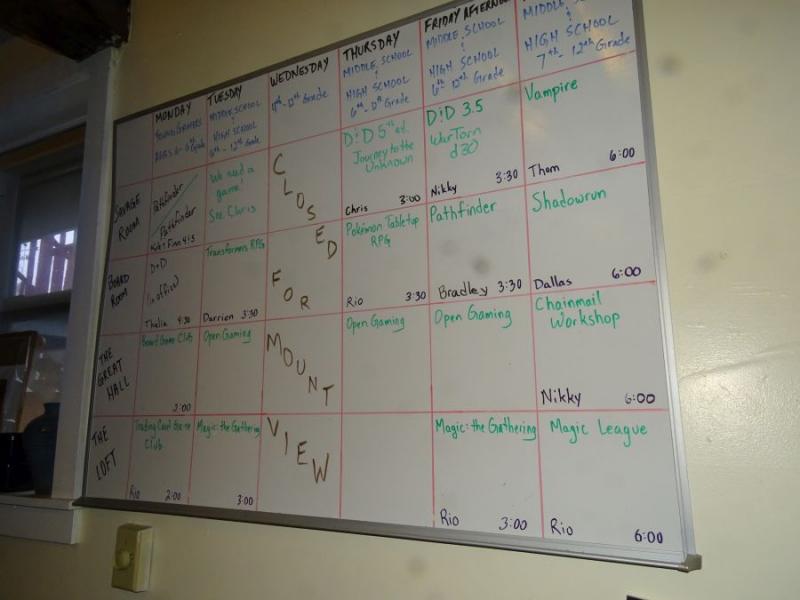 MONDAY
YOUNG GRADERS
TUESDAY
MIDDLE SCHOOL
HIGH SCHOOL
6th - 12th Grade
WEDNESDAY
THURSDAY
MIDDLE SCHOOL
HIGH SCHOOL
6th - 12th Grade
FRIDAY AFTERNOO
MIDDLE SCHOOL
HIGH SCHOOL
6th - 12th Grade
MIDDLE SCHOOL
HIGH SCHOOL
7th - 12th Grade
SAVAGE
ROOM
Pathfinder
Pathfinder
We need a
game!
See Chris
CLOSED
D&D 5th ed.
Journey to the
Unknown
Chris 3:00
D&D 3.5
WarTorn
d30
Nikky 3:30
Vampire
Thom 6:00
BOARD
ROOM
D&D
(in office)
Thalia 4:30
Transformers RPG
Darrien 3:30
FOR
Pokémon Tabletop
RPG
Rio 3:30
Pathfinder
Bradley 3:30
Shadowrun
Dallas 6:00
THE
GREAT
HALL
Board Game Club
2:00
Open Gaming
MOUNT
Open Gaming
Open Gaming
Chainmail
Workshop
Nikky 6:00
THE
LOFT
Trading Card Game
Club
Rio 2:00
Magic: the Gathering
3:00
VIEW
Magic: the Gathering
Rio 3:00
Magic League
Rio 6:00